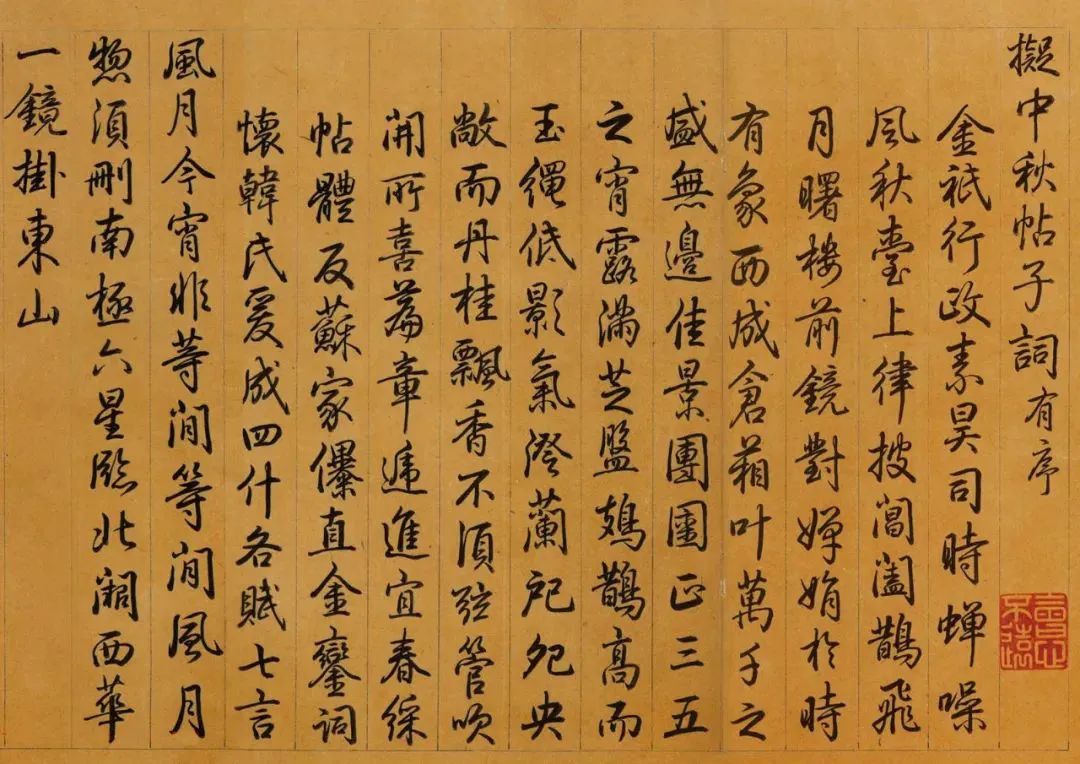 擬中秋帖子詞有序
金祇行政素昊司時蟬噪
風秋臺上律搜閶闔鵲飛
月曙樓前鏡對嬋娟於時
有象西成倉箱叶萬千之
盛無邊佳景團圞正三五
之宵露滿芝盤鳷鵲高而
玉繩低影氣澄蘭戺夗央
敞而丹桂飄香不須弦管吹
開所喜篇章遞進宜春綵
帖體反蘇家儤直金鑾詞
懷韓氏爰成四什各賦七言
風月今宵非等閒等閒風月
惣須刪南極六星臨北闕西華
一鏡掛東山